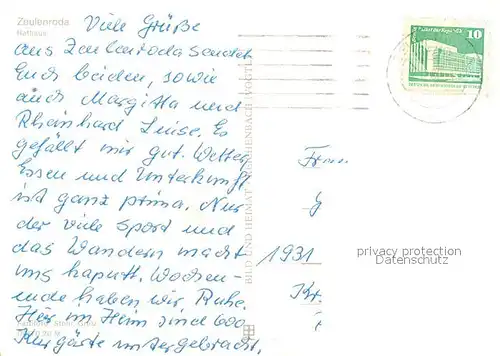 Zeulenroda
Rathaus
Viele Grüße
aus Zeulenroda sendet
Euch beiden, sowie
auch Margitta und
Rheinhard Luise. Es
gefällt mir gut. Wetter
Essen und Unterkunft
ist ganz prima. Nur
der viele Sport und
das Wandern macht
uns kaputt. Wochen-
ende haben wir Ruhe.
Hier im Heim sind 600
Kurgäste untergebracht.
BILD UND HEIMAT REICHENBACH
10
1931
privacy protection
Datenschutz